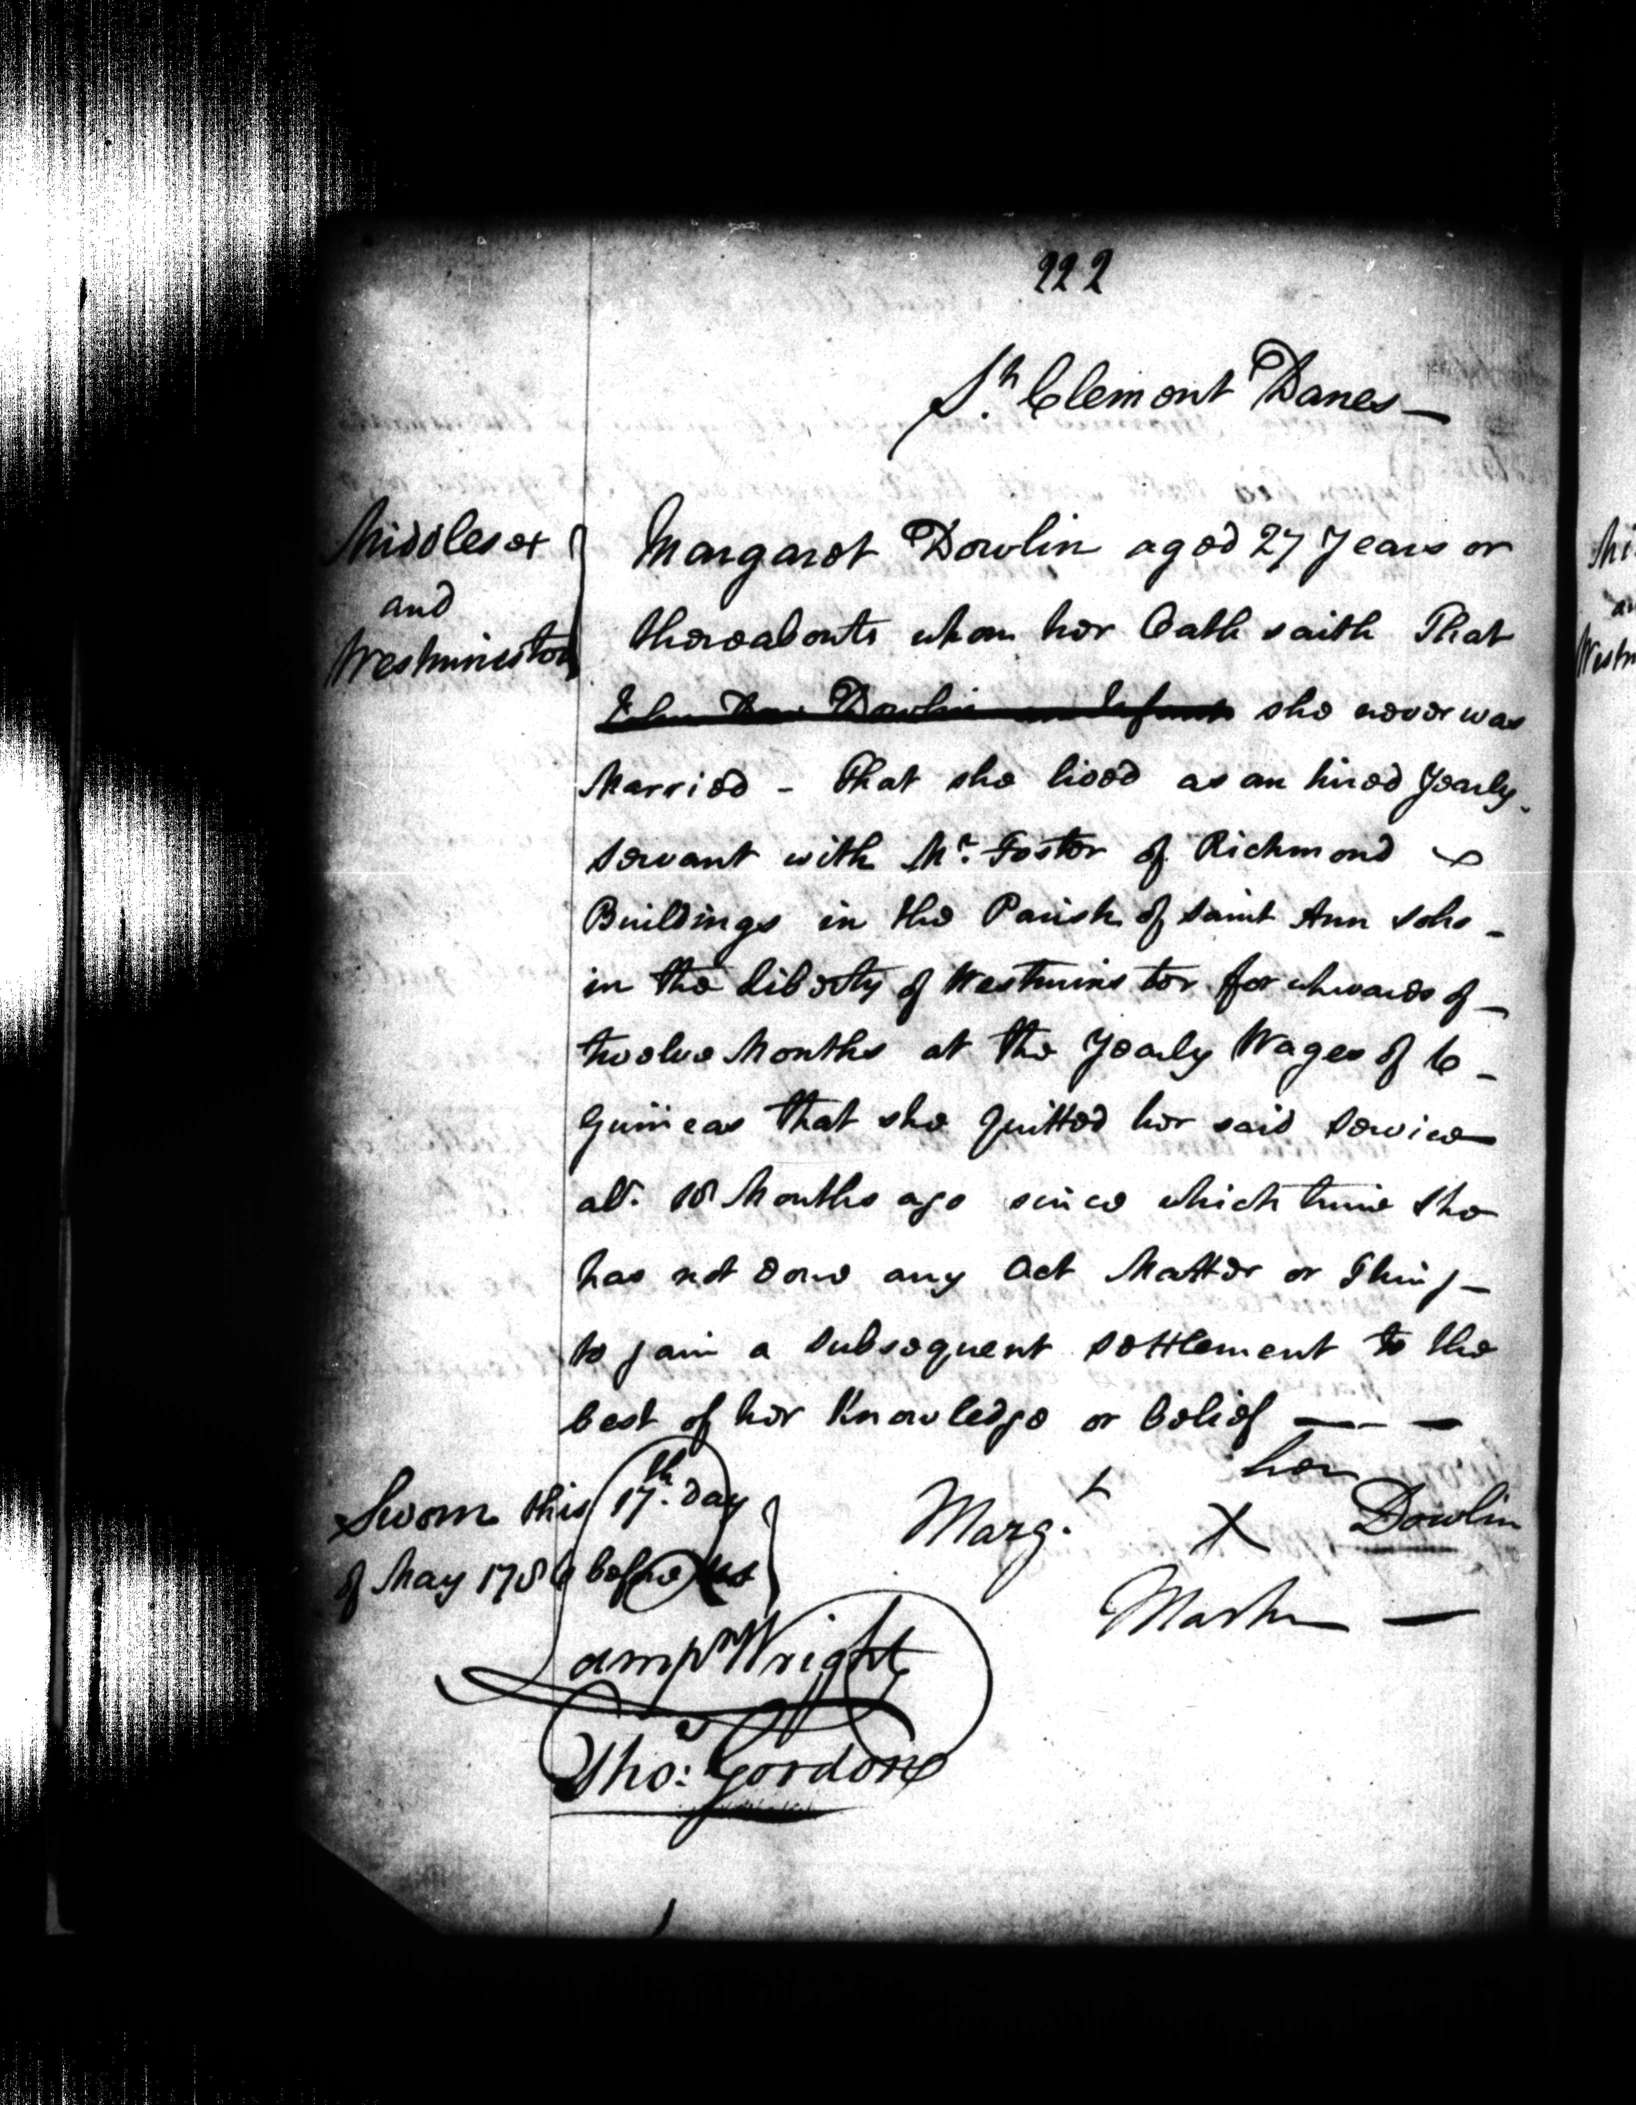 222
St. Clement Danes
Middlesex
and
Westminster
Margaret Dowlin aged 27 Years or
thereabouts upon her Oath saith That
John Dowlin an Infant she never was
Married - That she lived as an hired Yearly
Servant with Mr. Foster of Richmond
Buildings in the Parish of Saint Ann Soho -
in the Liberty of Westminster for upwards of -
twelve Months at the Yearly Wages of 6 -
Guineas that she quitted her said Service
abt. 18 Months ago since which time She
has not done any Act Matter or Thing -
to gain a subsequent settlement to the
best of her Knowledge or belief - - -
Sworn this 17th. day
of May 1786 before us
her
Margt. X Dowlin
Mark -
Sampn Wright
Thos: Gordon
Mi
an
Westm